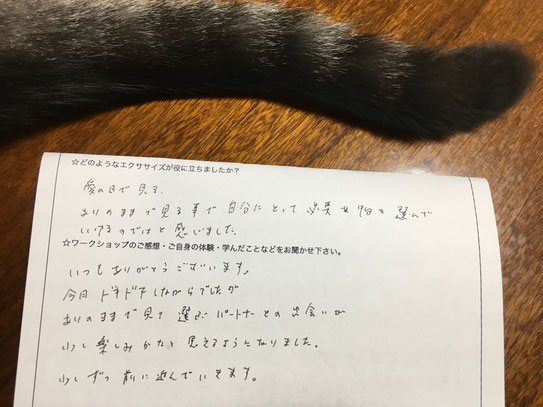 ☆どのようなエクササイズが役に立ちましたか?
愛の目で見る。
ありのままで見る事で自分にとって必要な物を選んで
いけるのではと感じました。
☆ワークショップのご感想・ご自身の体験・学んだことなどをお聞かせ下さい。
いつもありがとうございます。
今日ドキドキしながらでしたが
ありのままで見て選ぶパートナーとの出会いが
少し楽しみかなと見えるようになりました。
少しずつ前に進んでいきます。